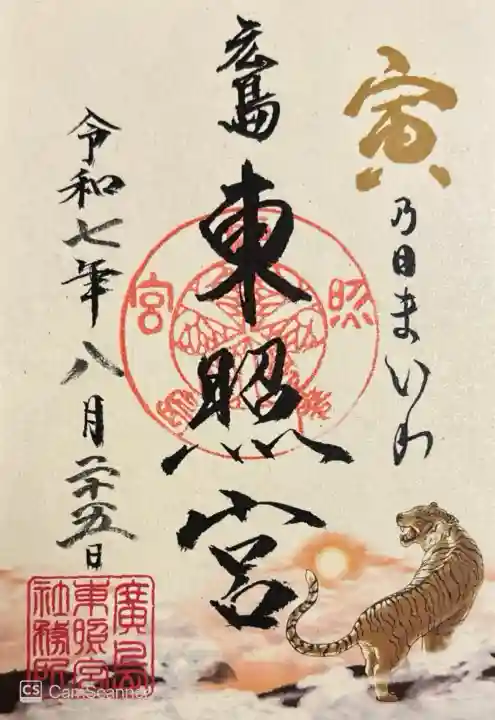 寅
乃日まいり
広島
東照宮
令和七年八月二十五日
照
宮
廣島
東照宮
社務所
CS CamScanner